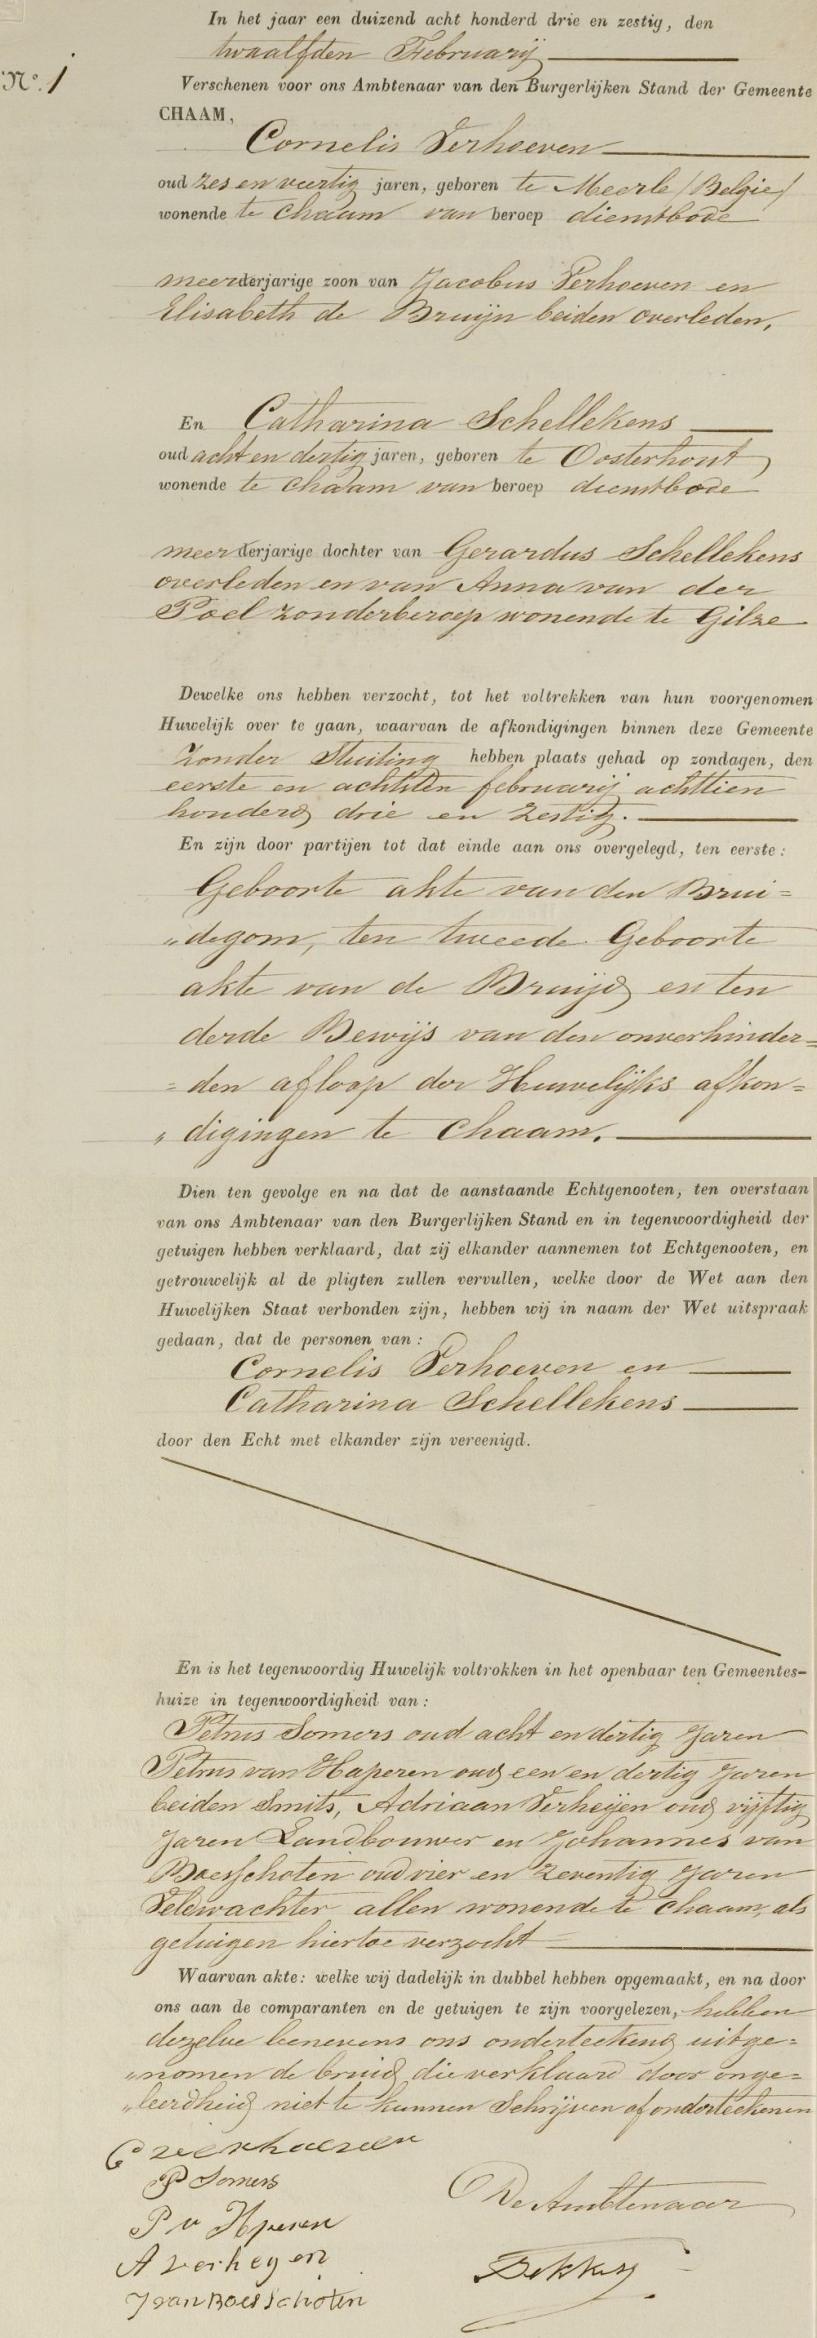 In het jaar een duizend acht honderd drie en zestig, den
twaalfden Februarij
No. 1
Verschenen voor ons Ambtenaar van den Burgerlijken Stand der Gemeente
CHAAM,
Cornelis Verhoeven
oud zes en veertig jaren, geboren te Meerle (Belgie)
wonende te Chaam van beroep dienstbode
meerderjarige zoon van Jacobus Verhoeven en
Elisabeth de Bruijn beiden overleden,
En Catharina Schellekens
oud acht en dertig jaren, geboren te Oosterhout,
wonende te Chaam van beroep dienstbode
meerderjarige dochter van Gerardus Schellekens
overleden en van Anna van der
Poel zonder beroep wonende te Gilze
Dewelke ons hebben verzocht, tot het voltrekken van hun voorgenomen
Huwelijk over te gaan, waarvan de afkondigingen binnen deze Gemeente
zonder Stuiting hebben plaats gehad op zondagen, den
eerste en achtsten februarij achttien
honderd drie en Zestig.
En zijn door partijen tot dat einde aan ons overgelegd, ten eerste:
Geboorte akte van den Brui=
„degom, ten tweede Geboorte
akte van de Bruijd en ten
derde Bewijs van den onverhinder=
=den afloop der Huwelijks afkon=
„digingen te Chaam.
Dien ten gevolge en na dat de aanstaande Echtgenooten, ten overstaan
van ons Ambtenaar van den Burgerlijken Stand en in tegenwoordigheid der
getuigen hebben verklaard, dat zij elkander aannemen tot Echtgenooten, en
getrouwelijk al de pligten zullen vervullen, welke door de Wet aan den
Huwelijken Staat verbonden zijn, hebben wij in naam der Wet uitspraak
gedaan, dat de personen van:
Cornelis Verhoeven en
Catharina Schellekens
door den Echt met elkander zijn vereenigd.
En is het tegenwoordig Huwelijk voltrokken in het openbaar ten Gemeentes-
huize in tegenwoordigheid van:
Petrus Somers oud acht en dertig Jaren
Petrus van Haperen oud een en dertig Jaren
beiden Smits, Adriaan Verheijen oud vijftig
Jaren Landbouwer en Johannes van
Boesschoten oud vier en Zeventig Jaren
Veldwachter allen wonende te Chaam, als
getuigen hiertoe verzocht
Waarvan akte: welke wij dadelijk in dubbel hebben opgemaakt, en na door
ons aan de comparanten en de getuigen te zijn voorgelezen, hebben
dezelve benevens ons onderteekend uitge=
„nomen de bruid die verklaard door onge=
„leerdheid niet te kunnen Schrijven of onderteekenen
C verhoeven
P Somers
De Ambtenaar
P v Hperen
A verheyen
Dekkers
J van Boesschoten